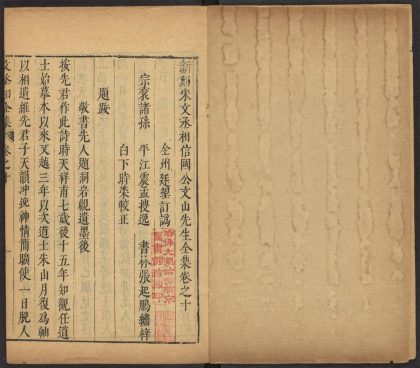 新刻宋文丞相信國公文山先生全集卷之十
仝州 廷望 訂譌
宗裔諸孫 平江震孟搜逸 書林張起鵬繡梓
白下時策較正
題跋
敬書先人題洞岩觀遺墨後
按先君作此詩時天祥甫七歲後十五年知觀任道
士始摹本以來又越三年以次道士朱山月復爲軸
以相道維先君子天韻冲逸神情簡曠使一日脫人
文丞相全集 卷之十 一